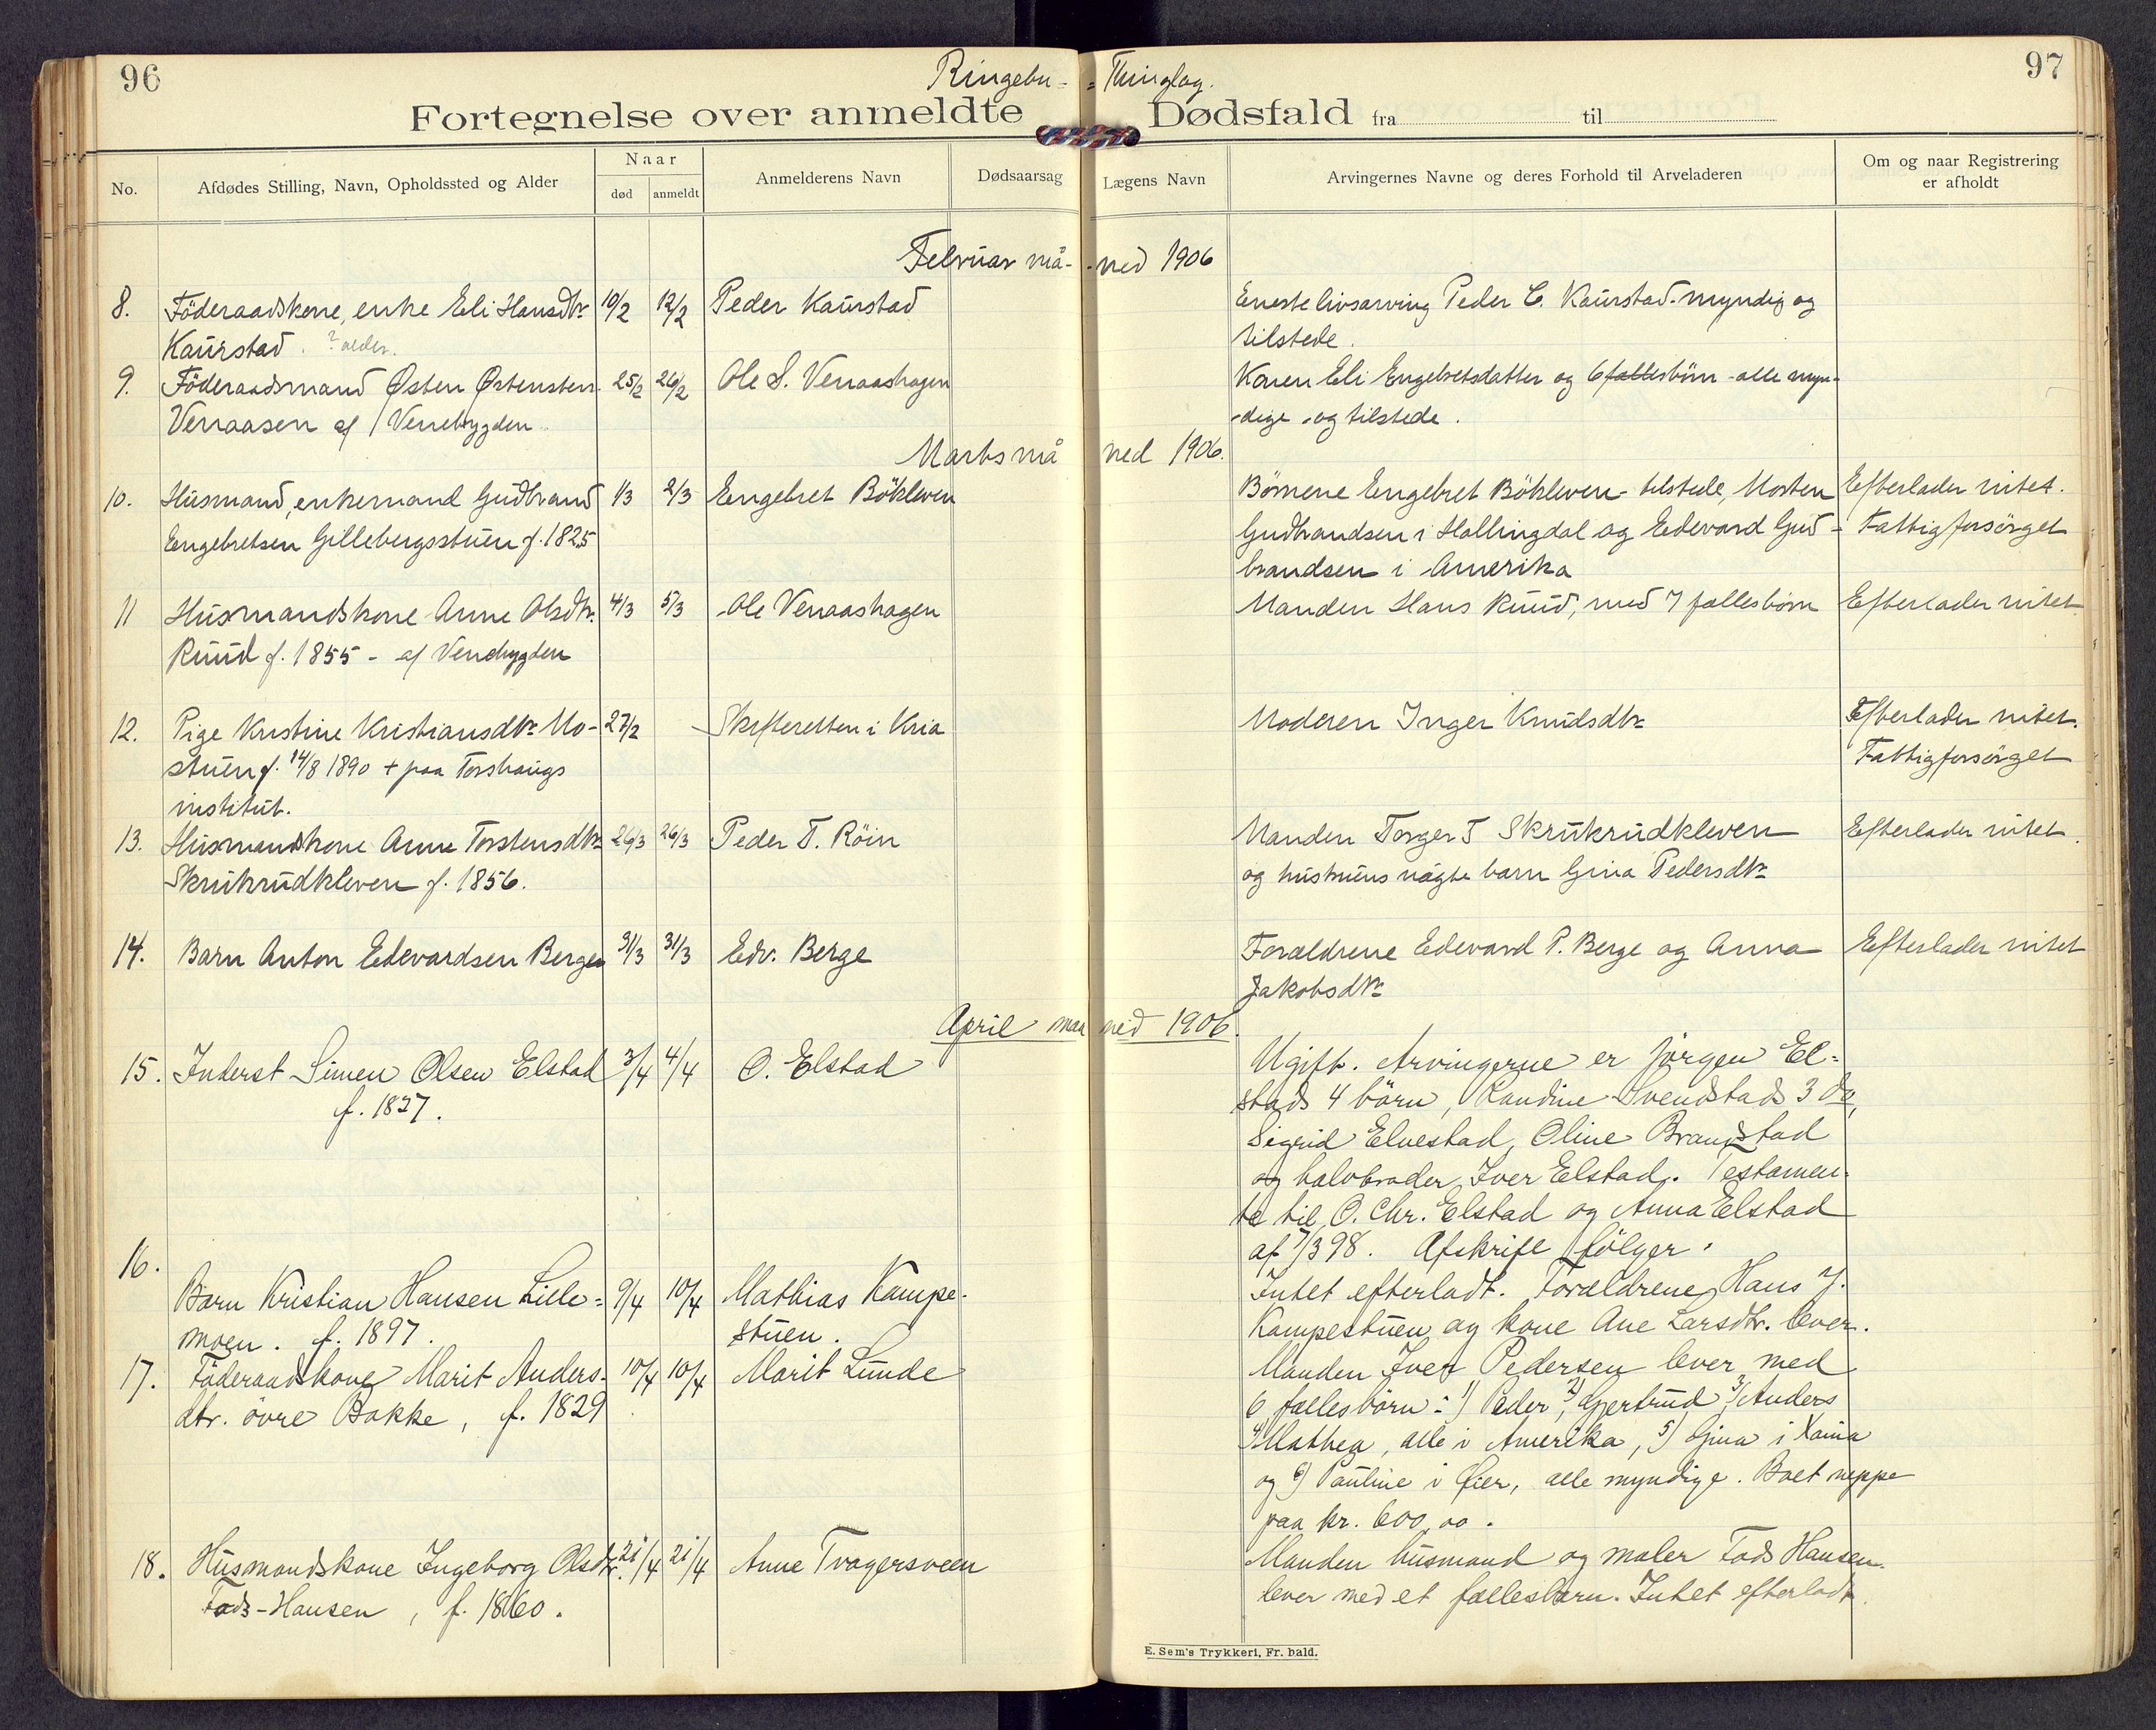 96
Ringebu-
= Thinglag.
97
Fortegnelse over anmeldte Dødsfald fra til
No.
Afdødes Stilling, Navn, Opholdssted og Alder
Naar
død
anmeldt
Anmelderens Navn
Dødsaarsag
Lægens Navn
Arvingernes Navne og deres Forhold til Arveladeren
Om og naar Registrering
er afholdt
Februar må- -ned 1906
8. Föderaadskone, enke Eli Hansdtr 10/2 12/2 Peder Kaurstad Eneste livsarving Peder C. Kaurstad - myndig og
Kaurstad. ? alder. tilstede.
9. Föderaadsmand Østen Østensten 25/2 26/2 Ole S. Venaashagen Konen Eli Engebretsdatter og 6 fællesbörn - alle myn-
Venaasen af Venebygden -dige - og tilstede.
Marts må ned 1906.
10. Husmand, enkemand Gudbrand 1/3 2/3 Engebret Bökleven Börnene Engebret Bökleven - tilstede, Morten Efterlader intet.
Engebretsen Gillebergsstuen f. 1825 Gudbrandsen i Hallingdal og Edevard Gud- Fattigforsörget
brandsen i Amerika
11 Husmandskone Anne Olsdtr. 4/3 5/3 Ole Venaashagen Manden Hans Ruud, med 7 fællesbörn Efterlader intet
Ruud f. 1855 - af Venebygden
12. Pige Kristine Kristiansdtr Mo- 27/2 Skifteretten i Kria Moderen Inger Knudsdtr Efterlader intet.
stuen f. 14/8 1890 + paa Torshougs Fattigforsörget
institut.
13. Husmandskone Anne Torstensdtr 26/3 26/3 Peder T. Röin Manden Torger T Skrukrudkleven Efterlader intet.
Skrukrudkleven f. 1856. og hustruens uægte barn Gina Pedersdtr
14. Barn Anton Edevardsen Berge 31/3 31/3 Edv. Berge Forældrene Edevard P. Berge og Anna Efterlader intet
Jakobsdtr
April maa ned 1906.
15. Inderst Simen Olsen Elstad 3/4 4/4 O. Elstad Ugift. Arvingerne er Jörgen El-
f. 1827. stads 4 börn, Randine Svendstads 3 do,
Sigrid Elvestad, Oline Brandstad
og halvbroder Iver Elstad. Testamen-
te til O. Chr. Elstad og Anna Elstad
af 7/3 98. Afskrift fölger.
16.
Barn Kristian Hansen Lille- 9/4 10/4 Mathias Kampe- Intet efterladt. Forældrene Hans J.
moen. f. 1897. stuen. Kampestuen og kone Ane Larsdtr. lever.
17. Föderaadskone Marit Anders- 10/4 10/4 Marit Lunde Manden Iver Pedersen lever med
dtr. övre Bakke, f. 1829 6 fællesbörn: 1) Peder, 2) Gjertrud 3) Anders
4) Mathea, alle i Amerika, 5) Gina i
og 6) Pauline i Øier, alle myndige. Boet neppe
paa kr. 600,00.
18. Husmandskone Ingeborg Olsdtr. 21/4 21/4 Anne Tragersveen Manden husmand og maler Fads Hansen
Fads-Hansen, f. 1860. lever med et fællesbarn. Intet efterladt.
E. Sem's Trykkeri, Fr. hald.